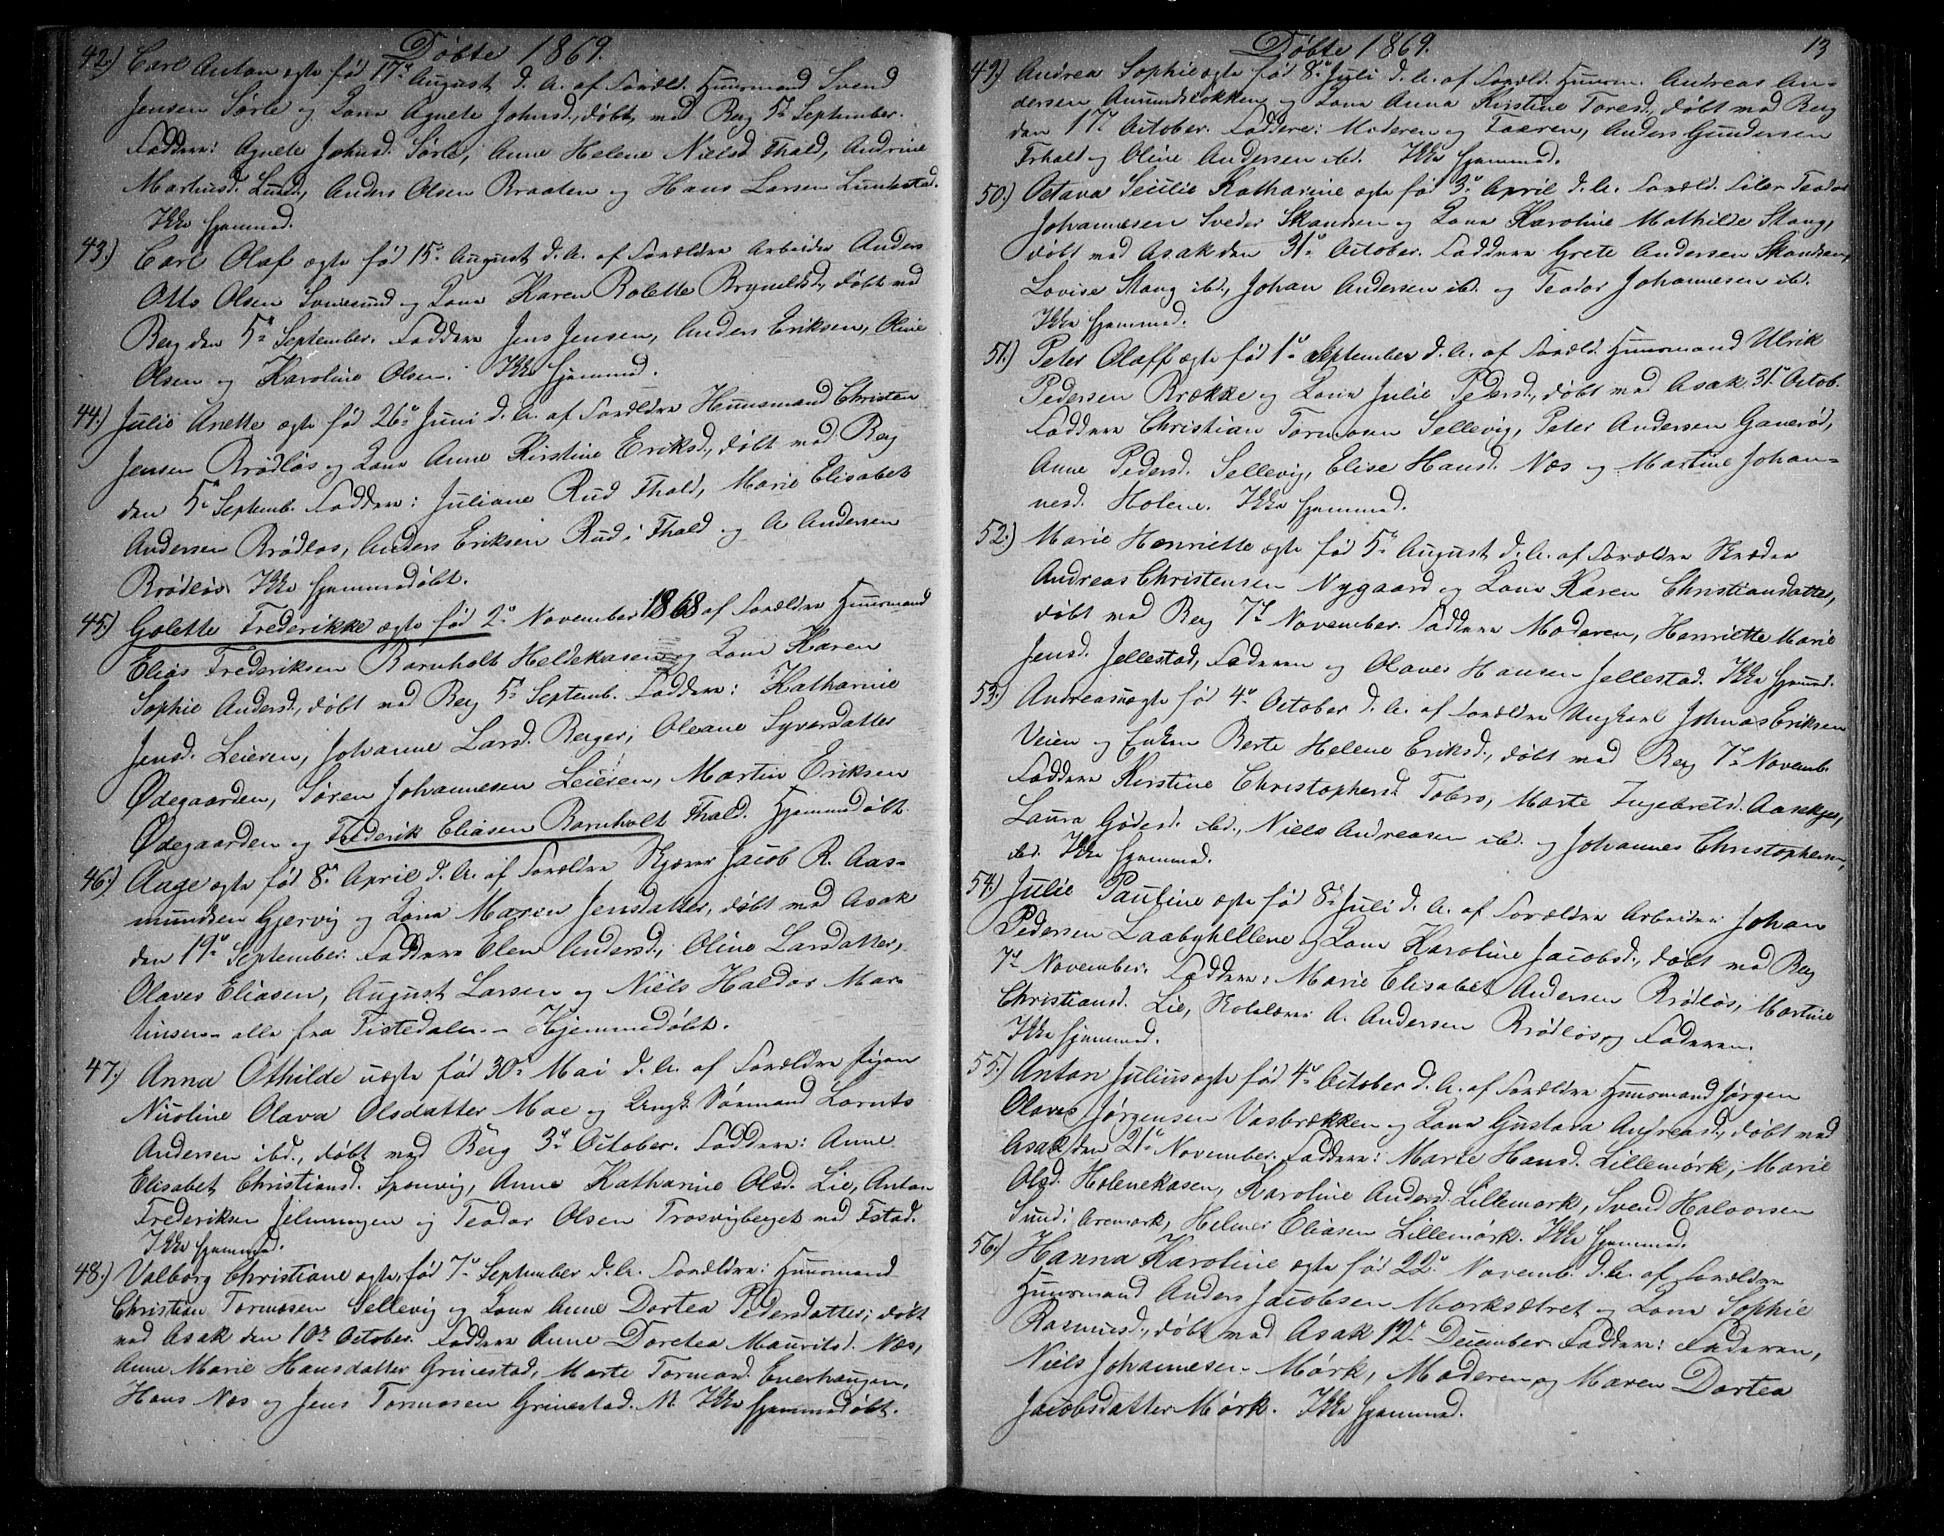 Døbte 1869.
42.) Carl Anton ægte fød 17de August d. A. af Foræld. Huusmand Svend
Jensen Sørli og Kone Agnete Johnsd., døbt ved Berg 5te September.
Faddere: Agnete Johnsd. Sørli, Anne Helene Nielsd. Fhald, Andrine
Martinsd. Lund, Anders Olsen Braaten og Hans Larsen Lundestad.
Ikke hjemmed.
43.) Carl Olaf ægte fød 15de August d. A. af Forældre Arbeider Anders
Otto Olsen og Kone Karen Rolette Brynildsd., døbt ved
Berg den 5te September. Faddere Jens Jensen, Anders Eriksen, Oline
Olsen og Karoline Olsen. Ikke hjemmed.
44.) Julie Anette ægte fød 26de Juni d. A. af Forældre Huusmand Christen
Jensen Brødløs og Kone Anne Kirstine Eriksd., døbt ved Berg
den 5te Septemb. Faddere: Juliane Rud Fhald, Marie Elisabet
Andersen Brødløs, Anders Eriksen Rud i Fhald og A. Andersen
Brødløs. Ikke hjemmedøbt.
45.) Golette Frederikke ægte fød 2de November 1868 af Forældre Huusmand
Elias Frederiksen Bornholt Heldekasen og Kone Karen
Sophie Andersd., døbt ved Berg 5te Septemb. Faddere: Katharine
Jensd. Leieren, Johanne Larsd. Berger, Oleane Syversdatter
Ødegaarden, Søren Johannesen Leieren, Martin Eriksen
Ødegaarden og Frederik Eliasen Bornholt Fhald. Hjemmedøbt
46.) Aage ægte fød 8de April d. A. af Forældre Skjærer Jacob R. Aas-
mundsen Gjervig og Kone Maren Jensdatter, døbt ved Asak
den 19de September. Faddere Elen Andersd., Oline Larsdatter,
Olaves Eliasen, August Larsen og Niels Haldor Mar-
tinsen - alle fra Tistedalen. - Hjemmedøbt.
47.) Anna Othilde uægte fød 30te Mai d. A. af Forældre Pigen
Nicoline Olava Olsdatter Moe og Ungk. Sømand Lornts
Andersen ibd., døbt ved Berg 3de October. Faddere: Anne
Elisabet Christiansd. Sponvig, Anne Katharine Olsd. Lie, Anton
Frederiksen Jelmungen og Teodor Olsen Trosvigberget ved Fstad.
Ikke hjemmed.
48.) Valborg Christiane ægte, fød 7de September d. A. Forældre: Huusmand
Christian Tormosen Sellevig og Kone Anne Dortea Pedersdatter, døbt
ved Asak den 10de October. Faddere Anne Doretea Mauritsd. Næs,
Anne Marie Hansdatter Grimestad, Marte Tormosd. Enerhaugen,
Hans Næs og Jens Tormosen Grimestad. M. Ikke hjemmedøbt.
13
Døbte 1869.
49.) Andrea Sophie ægte fød 8de Juli d. A. af Foræld. Huusm. Andreas An-
dersen Amundsløkken og Kone Anna Kirstine Toresd., døbt ved Berg
den 17de October. Faddere: Moderen og Faderen, Anders Gundersen
Frhald og Oline Andersen ibd. Ikke hjemmed.
50.) Octava Secilie Katharine ægte fød 3de April d. A. Foræld. Filer Teodor
Johannesen Sveder Skandsen og Kone Karoline Mathilde Stang,
døbt ved Asak den 31te October. Faddere Grete Andersen Skandsen,
Lovise Stang ibd., Johan Andersen ibd. og Teodor Johannesen ibd.
Ikke hjemmed.
51.) Peter Olaff ægte fød 1de September d. A. af Foræld. Huusmand Ulrik
Pedersen Brække og Kone Julie Pedersd., døbt ved Asak 31te Octob.
Faddere Christian Tormosen Sellevig, Peter Andersen Ganerød,
Anne Pedersd. Sellevig, Elise Hansd. Næs og Martine Johan-
nesd. Holene. Ikke hjemmed.
52.) Marie Henriette ægte fød 5te August d. A. af Forældre Skræder
Andreas Christensen Nygaard og Kone Karen Christiansdatter,
døbt ved Berg 7de November. Faddere Moderen, Henriette Marie
Jensd. Jellestad, Faderen og Olaves Hansen Jellestad. Ikke hjemmd.
53.) Andreas uægte fød 4de October d. A. af Forældre Ungkarl Johnas Eriksen
Veien og Enken Berte Helene Eriksd., døbt ved Berg 7de Novemb.
Faddere Kirstine Christophersd. Tobro, Marte Ingebretsd. Aaskjær,
Laura Godesd. ibd., Niels Andreasen ibd. og Johannes Christophersen,
ibd. Ikke hjemmed.
54.) Julie Pauline ægte fød 8de Juli d. A. af Forældre Arbeider Johan
Pedersen Laabyhellene og Kone Karoline Jacobsd., døbt ved Berg
7de November. Faddere: Marie Elisabet Andersen Brødløs, Martine
Christiansd. Lie, Skolelærer A. Andersen Brødløs og Faderen.
Ikke hjemmed.
55.) Anton Julius ægte fød 4de October d. A. af Forældre Huusmand Jørgen
Olaves Jørgensen Vasbrækken og Kone Gustava Andreasd., døbt ved
Asak den 21de November. Faddere: Marte Hansd. Lillemørk, Marie
Olsd. Holenekasen, Karoline Andersd. Lillemørk, Svend Halvorsen
Sund i Aremark, Helmer Eliasen Lillemørk. Ikke hjemmed.
56.) Hanna Karoline ægte fød 22de Novemb. d. A. af Forældre
Huusmand Anders Jacobsen Mørksætret og Kone Sophie
Rasmusd., døbt ved Asak 12te December. Faddere: Faderen,
Niels Johannesen Mørk, Moderen og Maren Dortea
Jacobsdatter Mørk. Ikke hjemmed.